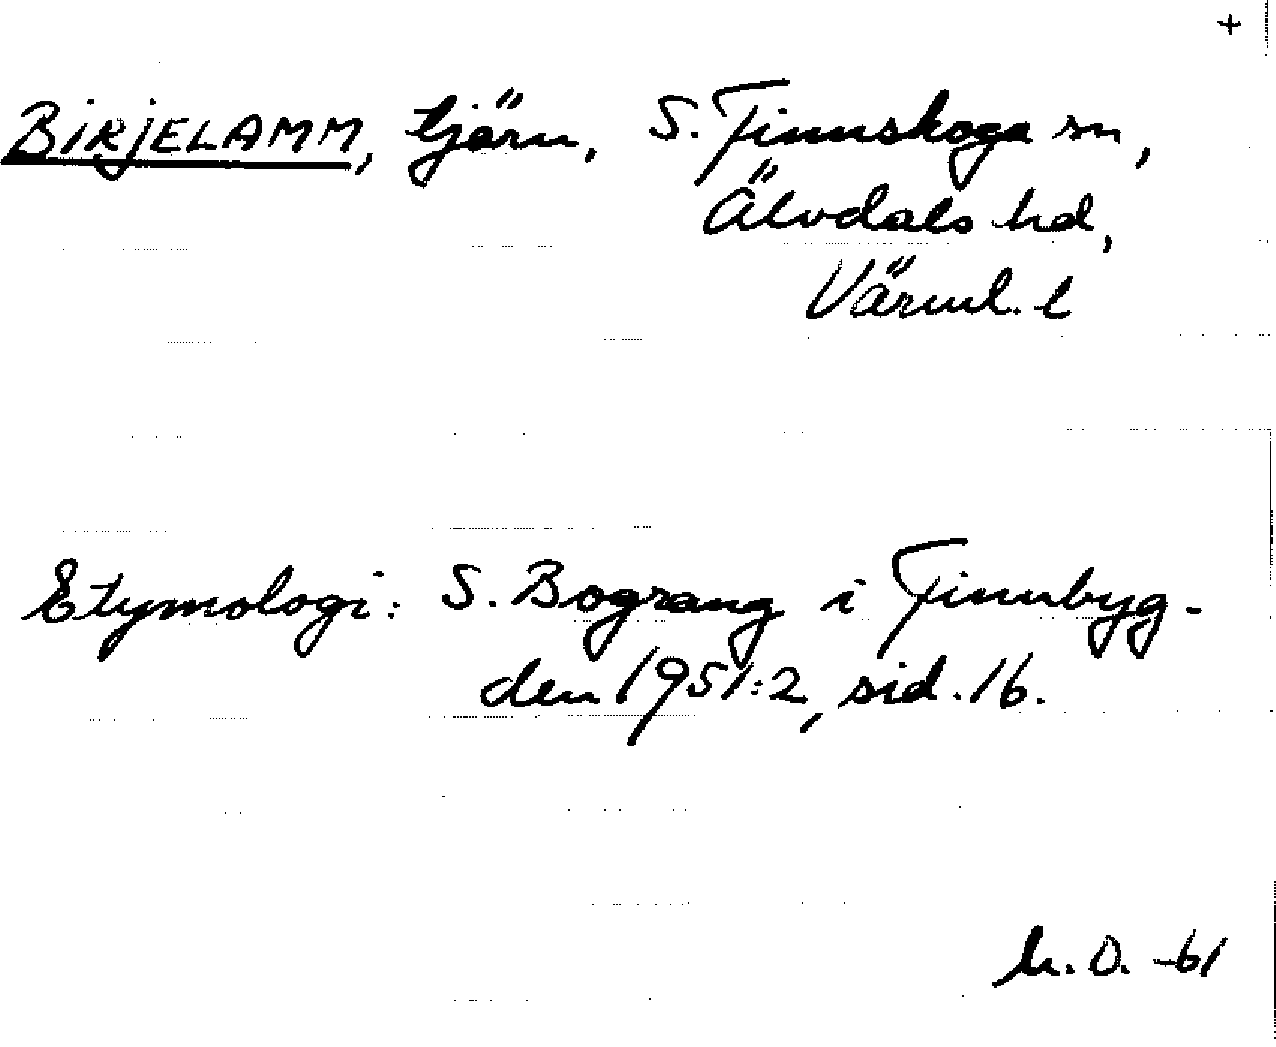 +
BIRJELAMM, tjärn, S. Finnskoga sn,
Älvdals hd,
Värml. l
Etymologi: S. Bograng i Finnbyg-
den 1951:2, sid. 16.
O. -61